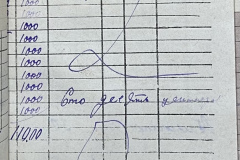 1000
1000
1000
1000
1000
1000
1000
1000
1000 Сто десять
1000
110,00